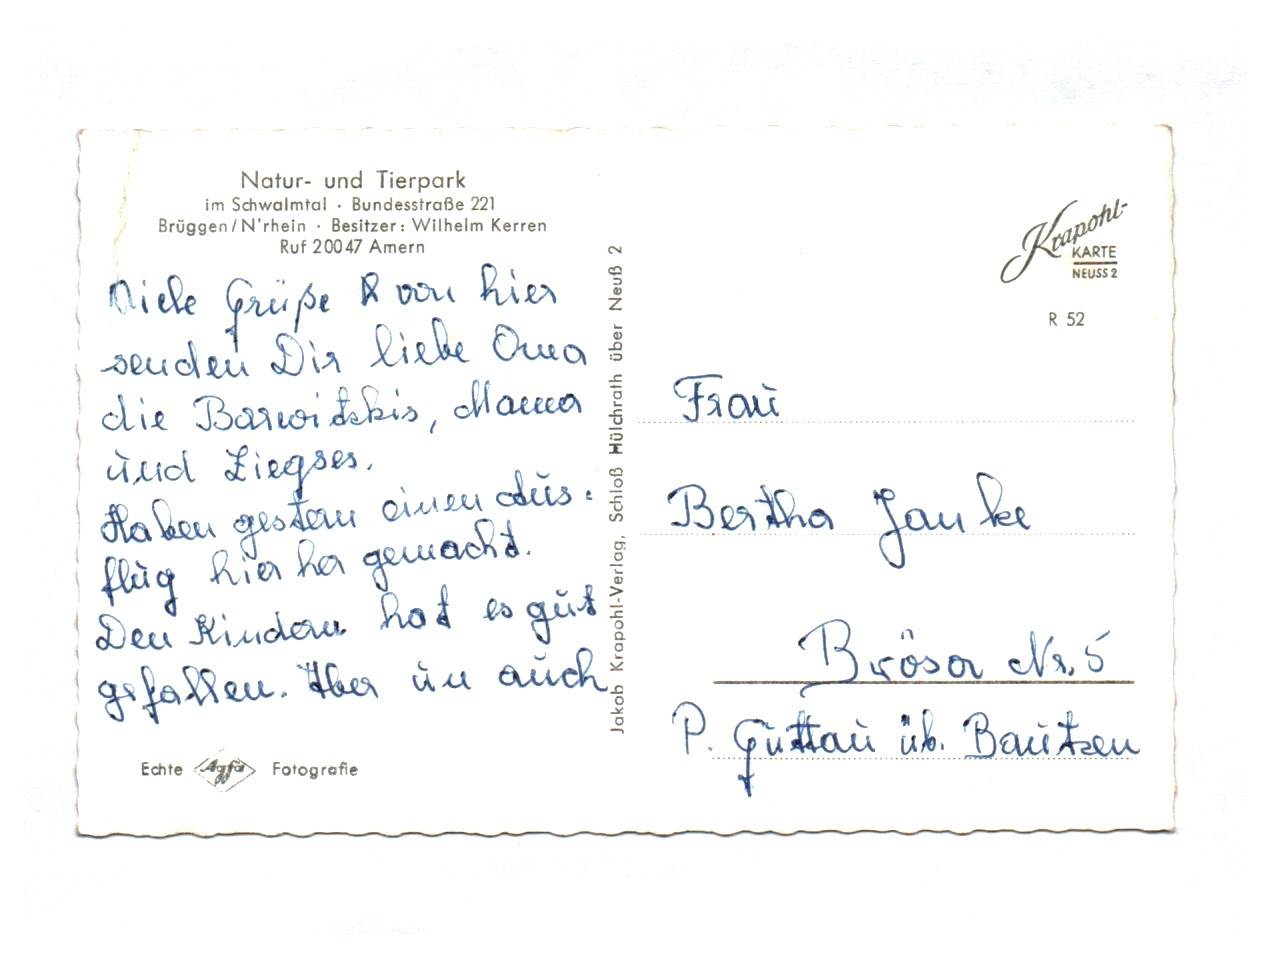 Natur- und Tierpark
im Schwalmtal · Bundesstraße 221
Brüggen/N'rhein · Besitzer: Wilhelm Kerren
Ruf 20047 Amern
Viele Grüße von hier
senden Dir liebe Oma
die Barwitzkis, Mama
und Ziegses.
Haben gestern einen Aus-
flug hier her gemacht.
Den Kindern hat es gut
gefallen. Aber un auch
Echte Agfa Fotografie
Jakob Krapohl-Verlag, Schloß Hülchrath über Neuß 2
Krapohl-
KARTE
NEUSS 2
R 52
Frau
Bertha Janke
Brösa Nr. 5
P. Guttau üb. Bautzen